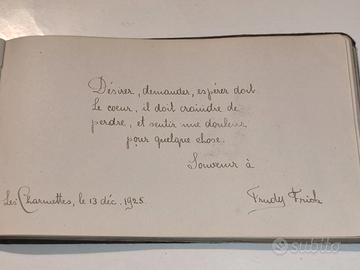 Désirer, demander, espérer doit
le coeur, il doit craindre de
perdre, et sentir une douleur
pour quelque chose.
Souvenir à
Les Charmettes, le 13 déc. 1925.
Trudy
subito